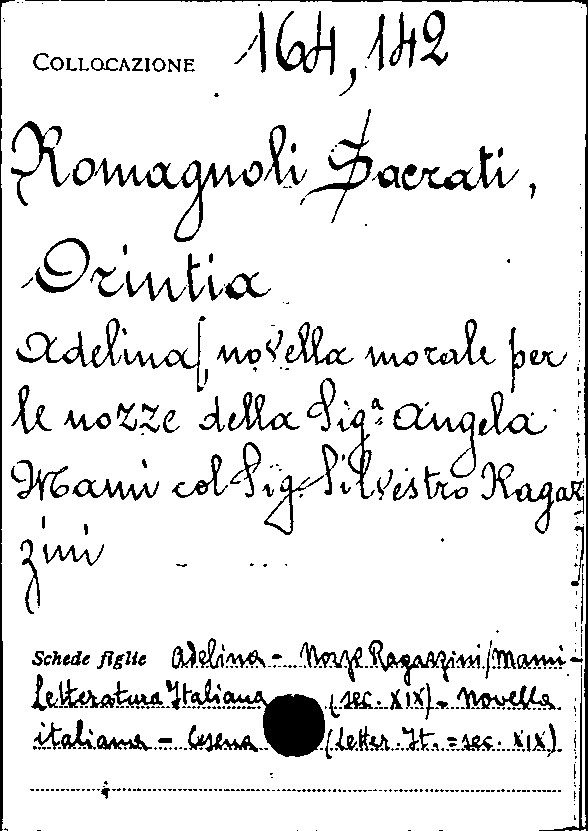 COLLOCAZIONE 164,142
Romagnoli Sacrati,
Orintia
Adelina, novella morale per
le nozze della Sigª Angela
Mami col Sig. Silvestro Ragaz
zini
Schede figlie Adelina - Nozze Ragazzini/Mami -
Letteratura Italiana (sec. XIX) - Novella
italiana - Cesena (Letter. It. = sec. XIX)